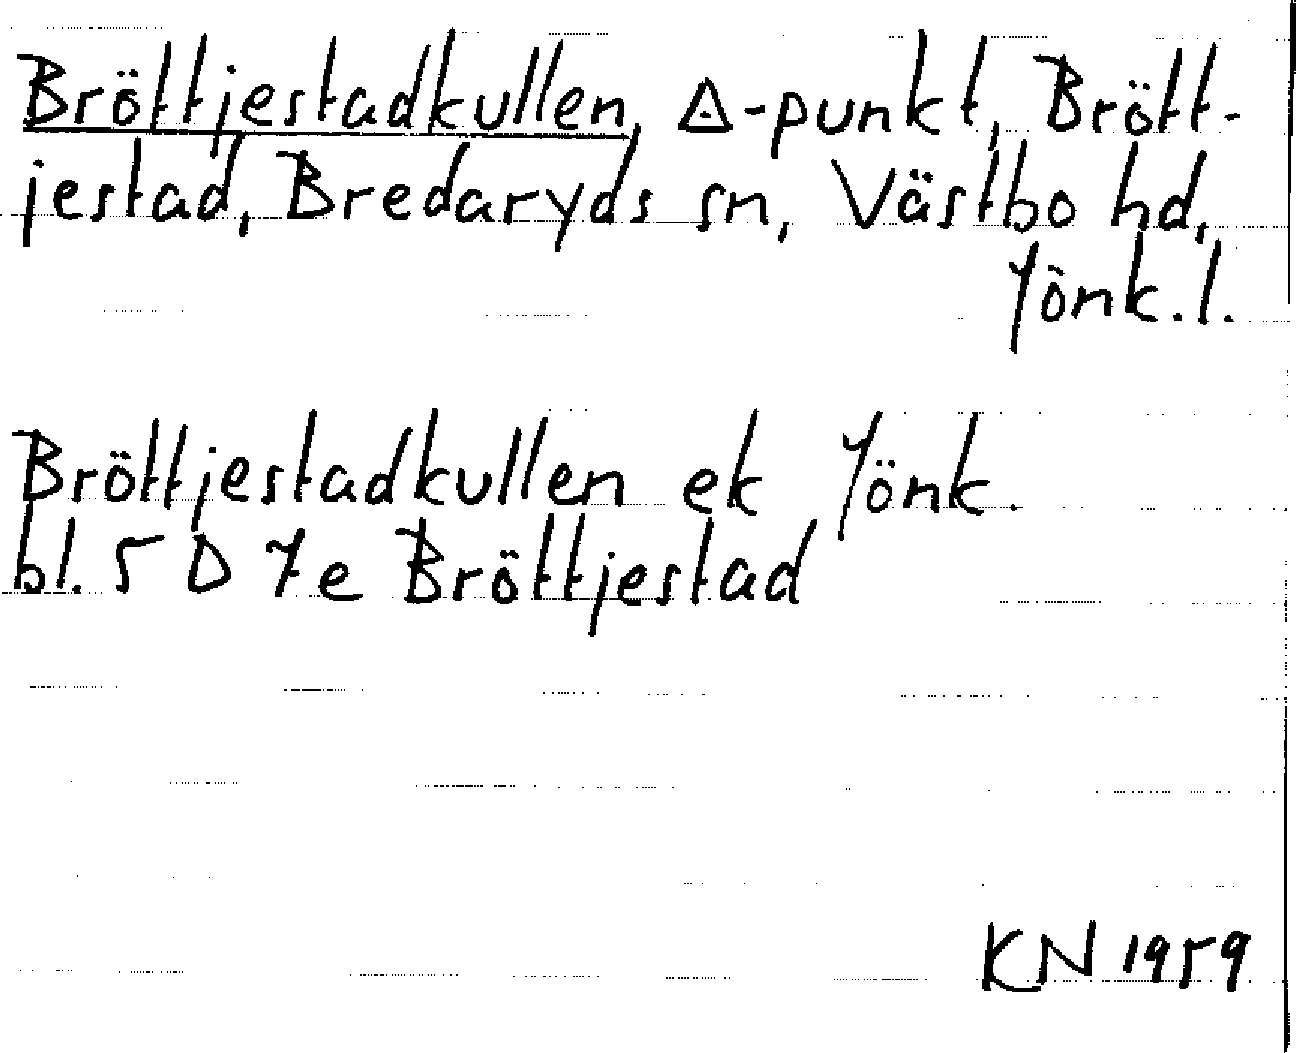 Bröttjestadkullen, △-punkt, Brött-
jestad, Bredaryds sn, Västbo hd,
Jönk. l.
Bröttjestadkullen ek Jönk.
bl. 5 D 7e Bröttjestad
KN 1959